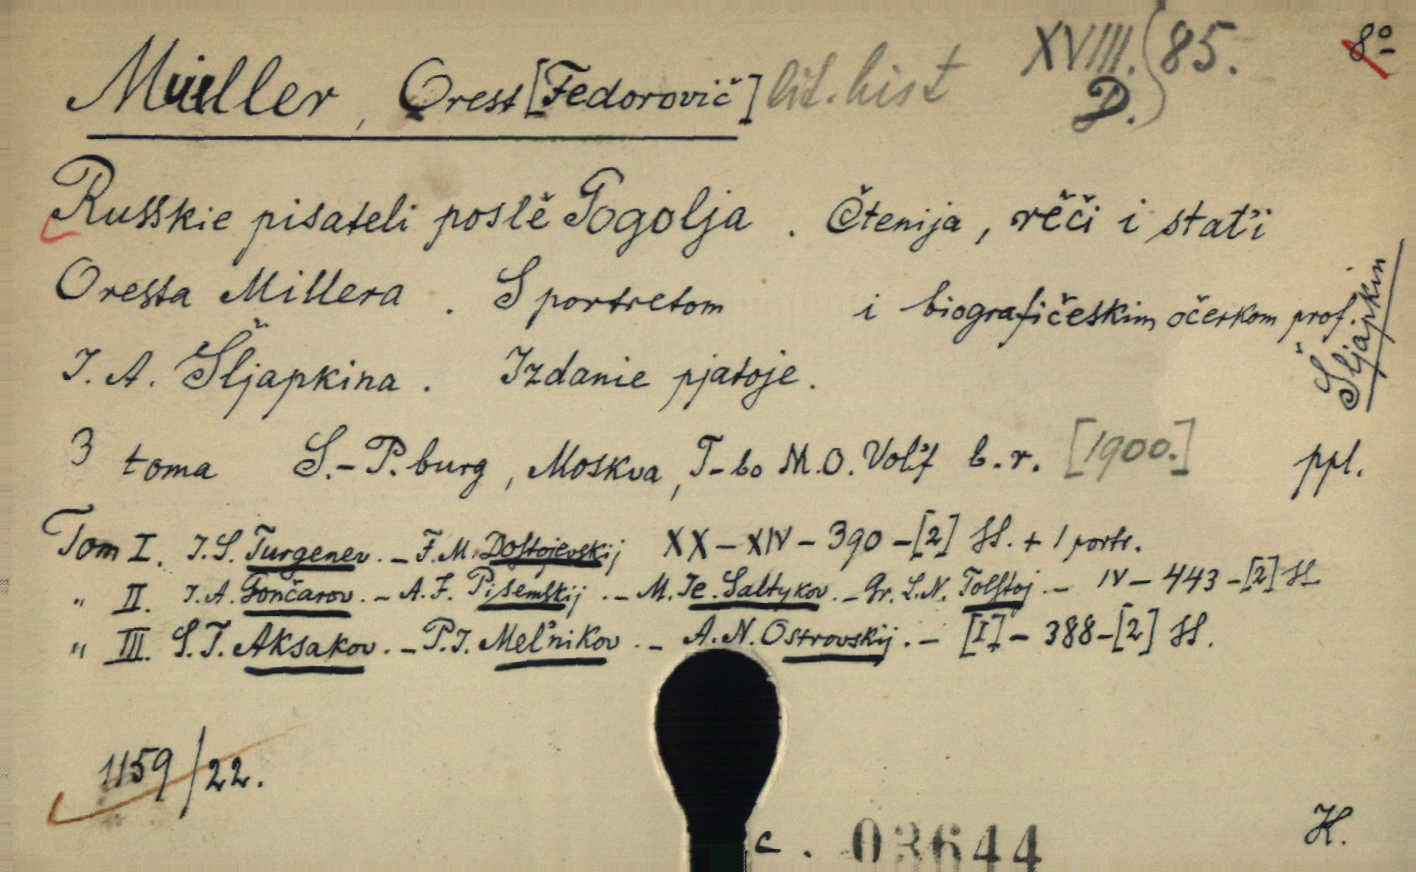 Müller, Orest [Fedorovič] lit. hist XVIII. 85. 8º
D.
Russkie pisateli poslě Gogolja. Čtenija, rěči i stat'i
Oresta Millera. S portretom i biografičeskim očerkom prof.
I. A. Šljapkina. Izdanie pjatoje.
Šljapkin
3 toma S.-P.burg, Moskva, T-vo M.O. Vol'f b.r. [1900.] ppl.
Tom I. I.S. Turgenev. - F.M. Dostojevskij XX - XIV - 390 - [2] SS. + 1 portr.
„ II. I.A. Gončarov. - A.F. Pisemskij. - M.Je. Saltykov. - Gr. L.N. Tolstoj. - IV - 443 - [2] SS
„ III. S.T. Aksakov. - P.I. Mel'nikov. - A.N. Ostrovskij. - [I] - 388 - [2] SS.
1159/22.
c. 03644
K.